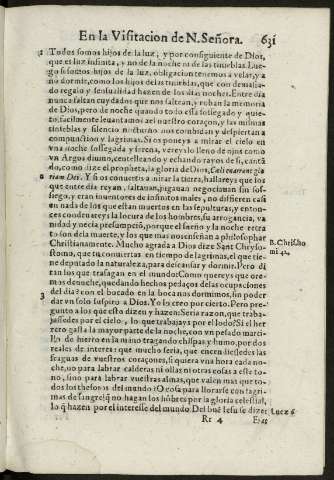 En la Visitacion de N. Señora. 631
Todos somos hijos de la luz, y por consiguiente de Dios,
que es luz infinita, y no de la noche ni de las tinieblas. Lue-
go si somos hijos de la luz, obligacion tenemos a velar, y a
no dormir, como los hijos de las tinieblas, que con demasia-
do regalo y sensualidad hazen de los dias noches. Entre dia
nunca faltan cuydados que nos saltean, y roban la memoria
de Dios, pero de noche quando todo esta sossegado y quie-
to, facilmente levantamos a el nuestro coraçon, y las mismas
tinieblas y silencio nocturno nos combidan y despiertan a
compunction y lagrimas. Si os poneys a mirar el cielo en
vna noche sossegada y serena, vereys lo lleno de ojos como
va Argos diuino, centelleando y echando rayos de si, cantã
do, como dize el propheta, la gloria de Dios, Cœli enarrant glo
riam Dei. Y si os conuertis a mirar la tierra, hallareys que los
que entre dia reyan, saltauan, jugauan negociauan sin sos-
siego, y eran inuentores de infinitos males, no differen casi
en nada de los que estan muertos en las sepulturas, y enton-
ces condenareys la locura de los hombres, su arrogancia, va
nidad y necia presumpciõ, porque el sueño y la noche retra
to son de la muerte, y los que nos enseñan a philosophar
Christianamente. Mucho agrada a Dios dize Sant Chryso-
stomo, que tu conuiertas en tiempo de lagrimas, el que tie-
ne deputado la naturaleza, para descansar y dormir. Pero di
ran los que trafagan en el mundo: Como quereys que ore-
mos de noche, quedando hechos pedaços de las ocupaciones
del dia? con el bocado en la boca nos dormimos, sin poder
dar vn solo suspiro a Dios. Yo lo creo por cierto. Pero pre-
gunto a los que esto dizen y hazen: Seria razon, que traba-
jassedes por el cielo, lo que trabajays por el lodo? Si el her
rero gasta la mayor parte de la noche, con vn pesado marti-
llo de hierro en la mano tragando chispas y humo, por dos
reales de interes: que mucho seria, que encendiessedes las
fraguas de vuestros coraçones, si quiera vna hora cada no-
che, no para labrar calderas ni ollas ni otras cosas a este to-
no, sino para labrar vuestras almas, que valen mas que to-
dos los thesoros del mundo? O cosa para llorarse con lagri-
mas de sangre! q̃ no hagan los hõbres por la gloria celestial,
lo q̃ hazen por el interesse del mundo. Del buẽ Iesu se dize:
B. Chrisho
mi 42.
Lucæ 6
Rr 4